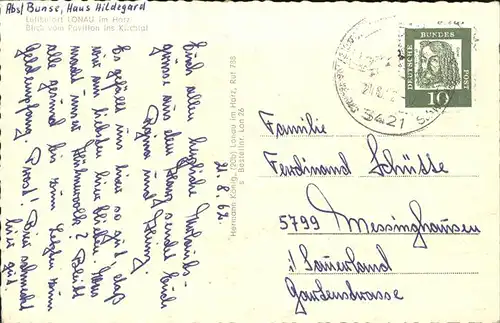 Abs/ Bunse, Haus Hildegard
Luftkurort LONAU im Harz
Blick vom Pavillon ins Kirchtal
21.8.62.
Euch allen herzliche Urlaubs-
grüsse aus dem Harz sendet Euch
Regina und
Es gefällt uns hier so gut, daß
wir am liebsten hier blieben. Was
macht unser Hühnervolk? Bleibt
alle gesund bis zum Letzten zum
Geldempfang. Prost! Bier schmeckt
hier gut.
Hermann König, (20b) Lonau im Harz, Ruf 788
s Bestellnr. Lon 26
DEUTSCHE BUNDESPOST
10
3421
Familie
Ferdinand Schütte
5799 Messinghausen
i/ Sauerland
Gartenstrasse